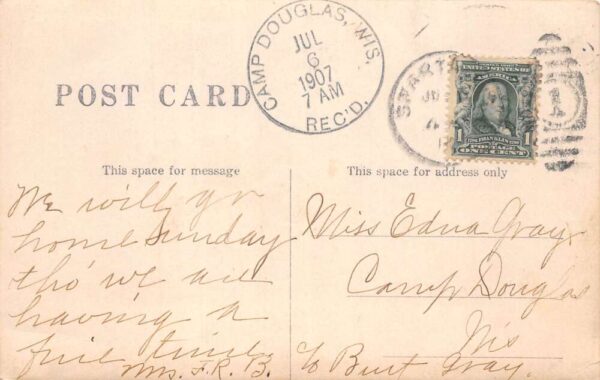 CAMP DOUGLAS, WIS.
JUL
6
1907
7 AM
REC'D.
POST CARD
UNITED STATES OF AMERICA
1 1
POSTAGE
ONE CENT
1
This space for message
This space for address only
We will go
home sunday
tho' we are
having a
fine time
Mrs. F. R. B.
Miss Edna Gray
Camp Douglas
Wis
c/o Burt Gray.